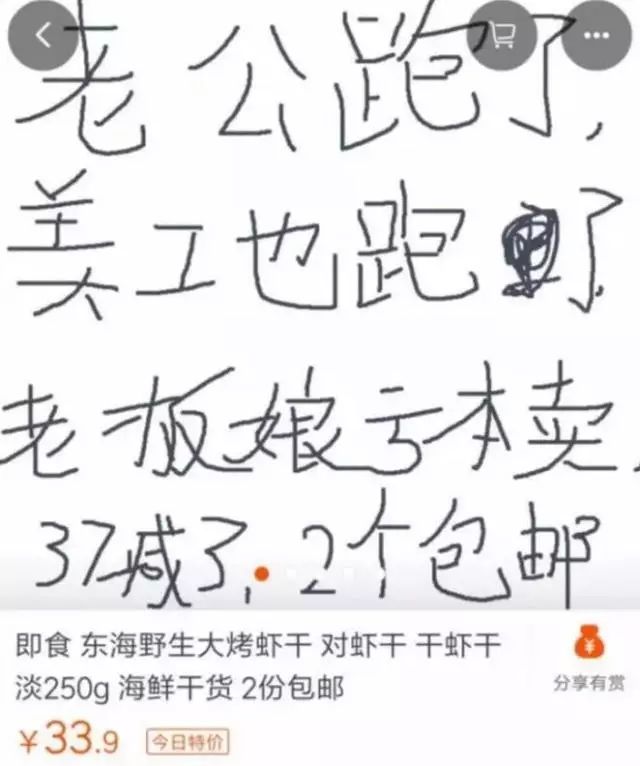 老公跑了,
美工也跑了,
老板娘亏本卖,
37减3,2个包邮
即食 东海野生大烤虾干 对虾干 干虾干
淡250g 海鲜干货 2份包邮
分享有赏
¥33.9 今日特价